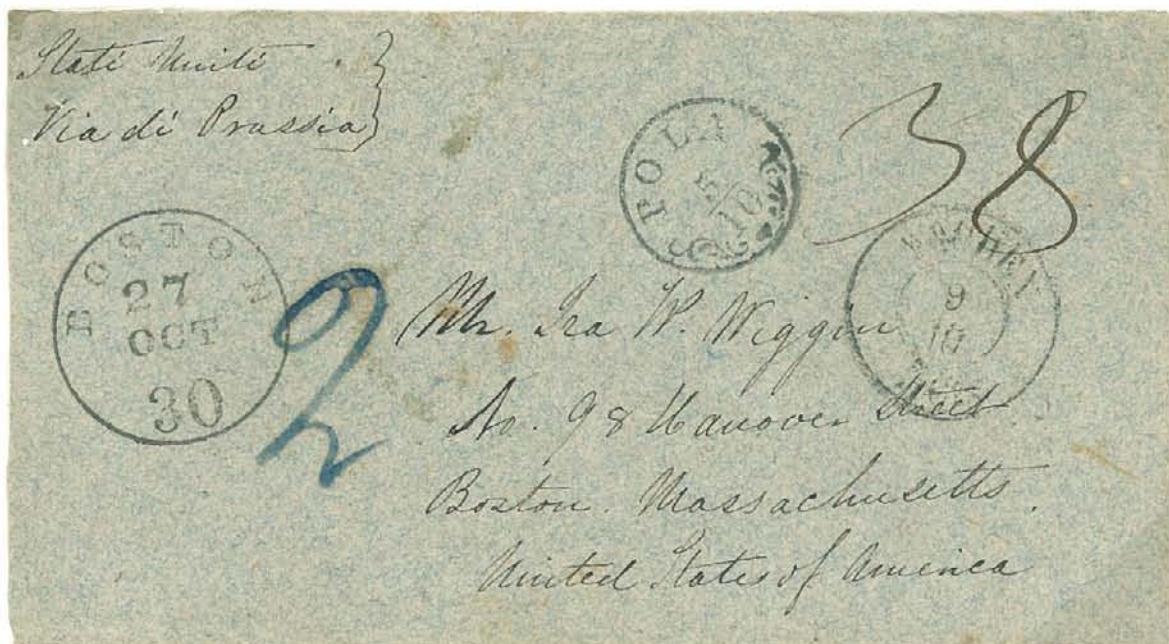 Stati Uniti
Via di Prussia
POLA
5/10
38
BOSTON
27
OCT
30
2
9
10
Mr. Ira W. Wiggin
No. 98 Hanover Street
Boston. Massachusetts.
United States of America